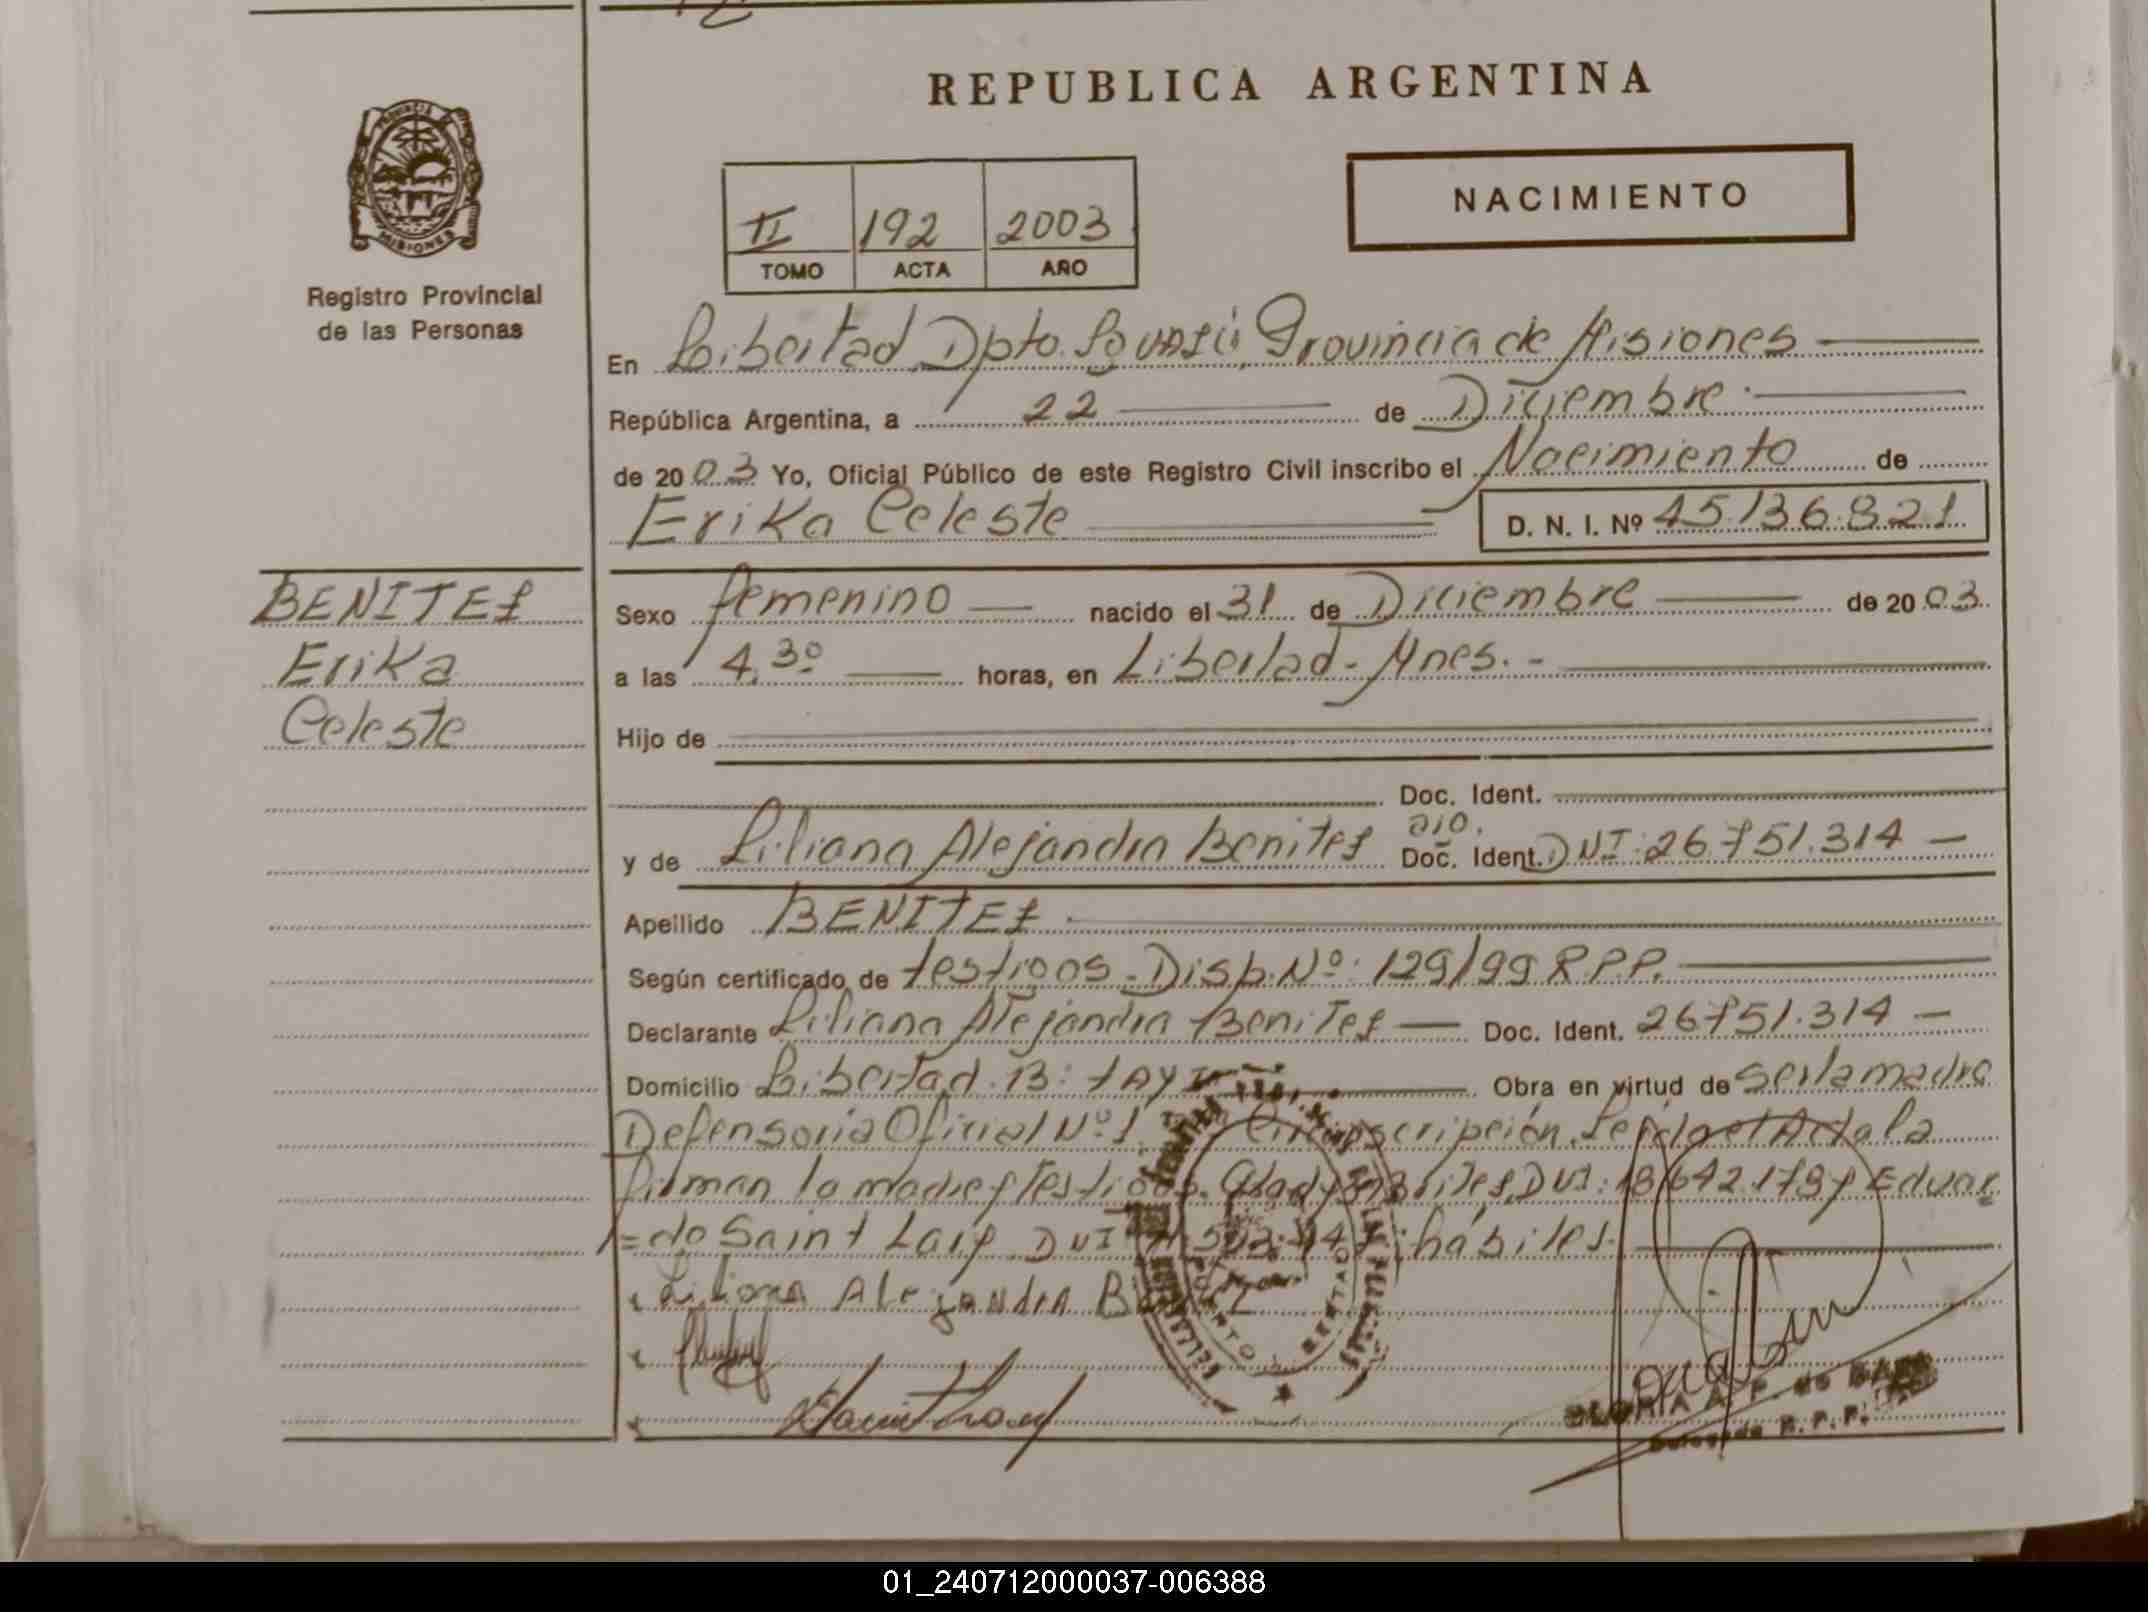 REPUBLICA ARGENTINA
PROVINCIA
MISIONES
Registro Provincial
de las Personas
II 192 2003
TOMO ACTA AÑO
NACIMIENTO
En Libertad Dpto. Iguazú, Provincia de Misiones
República Argentina, a 22 de Diciembre
de 2003 Yo, Oficial Público de este Registro Civil inscribo el Nacimiento de
Erika Celeste D. N. I. Nº 45.136.821
BENITEZ
Erika
Celeste
Sexo femenino nacido el 31 de Diciembre de 2003
a las 4,30 horas, en Libertad - Mnes. -
Hijo de
Doc. Ident.
y de Liliana Alejandra Benitez Doc. Ident. DNI: 26751.314 -
Apellido BENITEZ
Según certificado de testigos - Disp. Nº: 129/99 R.P.P.
Declarante Liliana Alejandra Benitez Doc. Ident. 26751.314 -
Domicilio Libertad. B: Obra en virtud de ser la madre
Defensoria Oficial Nº 1 Circunscripción. Leida el Acta la
firman la madre y testigos. Gladys DNI: 18.642.178 y Eduar
=do Saint DNI hábiles.
Liliana Alejandra
BERTAD
GLORIA A. P. de
Delegada R. P. P.
01_240712000037-006388